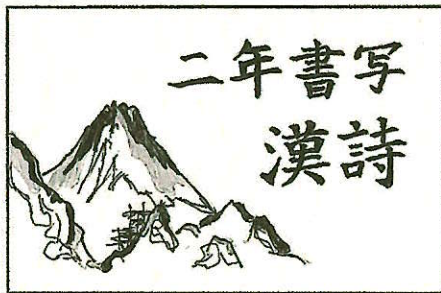 二年書写
漢詩